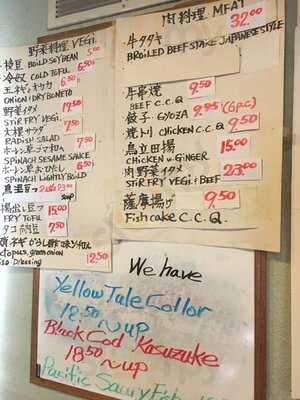 野菜料理 VEGI.
枝豆 BOILD SOYBEAN 5.00
冷奴 COLD TOFU 6.50
ONION & DRY BONETO 6.50
野菜イタメ
STIR FRY VEGI. 17.50
大根サラダ
RADISH SALAD 7.50
ホーレン草ゴマ和え
SPINACH SESAME SAUCE
ホーレン草おひたし 6.50
SPINACH LIGHTLY BOILD
SOUP
揚出し豆フ 15.00
FRY TOFU
タコ
12.50
肉料理 MEAT
牛タタキ 32.00
BROILED BEEF STAKE JAPANESE STYLE
牛串焼 9.50
BEEF C.C.Q
餃子 GYOZA 9.95 (6pc)
焼トリ CHICKEN C.C.Q 9.50
鳥立田揚 15.00
CHICKEN W GINGER
肉野菜イタメ 23.00
STIR FRY VEGI. & BEEF
薩摩揚げ 9.50
Fish cake C.C.Q.
We have
Yellow Tale Collor
18.50 〜up
Black Cod Kasuzuke
18.50 〜up
Pacific Saury Fish